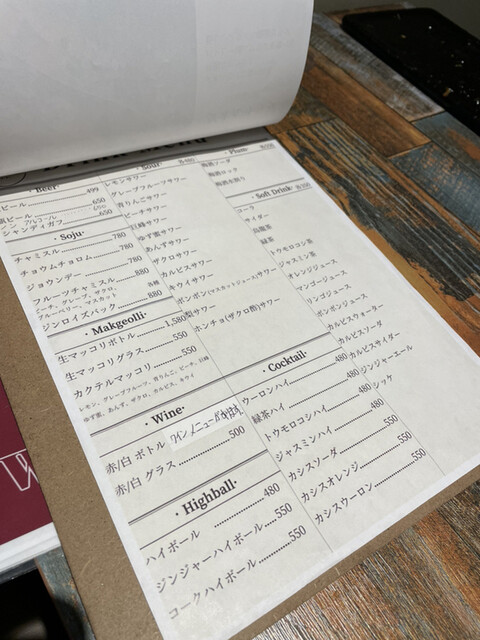 ·Beer·
ビール 499
瓶ビール 650
ノンアルコール 650
シャンディガフ 650
·Soju·
チャミスル 780
チョウムチョロム 780
ジョウンデー 780
フルーツチャミスル 各種 880
ピーチ、グレープ、ザクロ
ブルーベリー、マスカット
ジンロイズバック 880
·Makgeolli·
生マッコリボトル 1,580
生マッコリグラス 550
カクテルマッコリ 550
レモン、グレープフルーツ、青りんご、ピーチ、巨峰
ゆず蜜、あんず、ザクロ、カルピス、キウイ
·Sour·
レモンサワー
グレープフルーツサワー
青りんごサワー
ピーチサワー
巨峰サワー
ゆず蜜サワー
あんずサワー
ザクロサワー
カルピスサワー
キウイサワー
ボンボン(マスカットジュース)サワー
梨サワー
ホンチョ(ザクロ酢)サワー
·Plum·
梅酒ソーダ
梅酒ロック
梅酒水割り
·Soft Drink·
コーラ
サイダー
烏龍茶
緑茶
トウモロコシ茶
ジャスミン茶
オレンジジュース
マンゴージュース
リンゴジュース
ボンボンジュース
カルピスウォーター
カルピスソーダ
カルピスサイダー
ジンジャーエール
シッケ
·Wine·
赤/白 ボトル ワインメニューが有ります
赤/白 グラス 500
·Highball·
ハイボール 480
ジンジャーハイボール 550
コークハイボール 550
·Cocktail·
ウーロンハイ 480
緑茶ハイ 480
トウモロコシハイ 480
ジャスミンハイ 480
カシスソーダ 550
カシスオレンジ 550
カシスウーロン 550